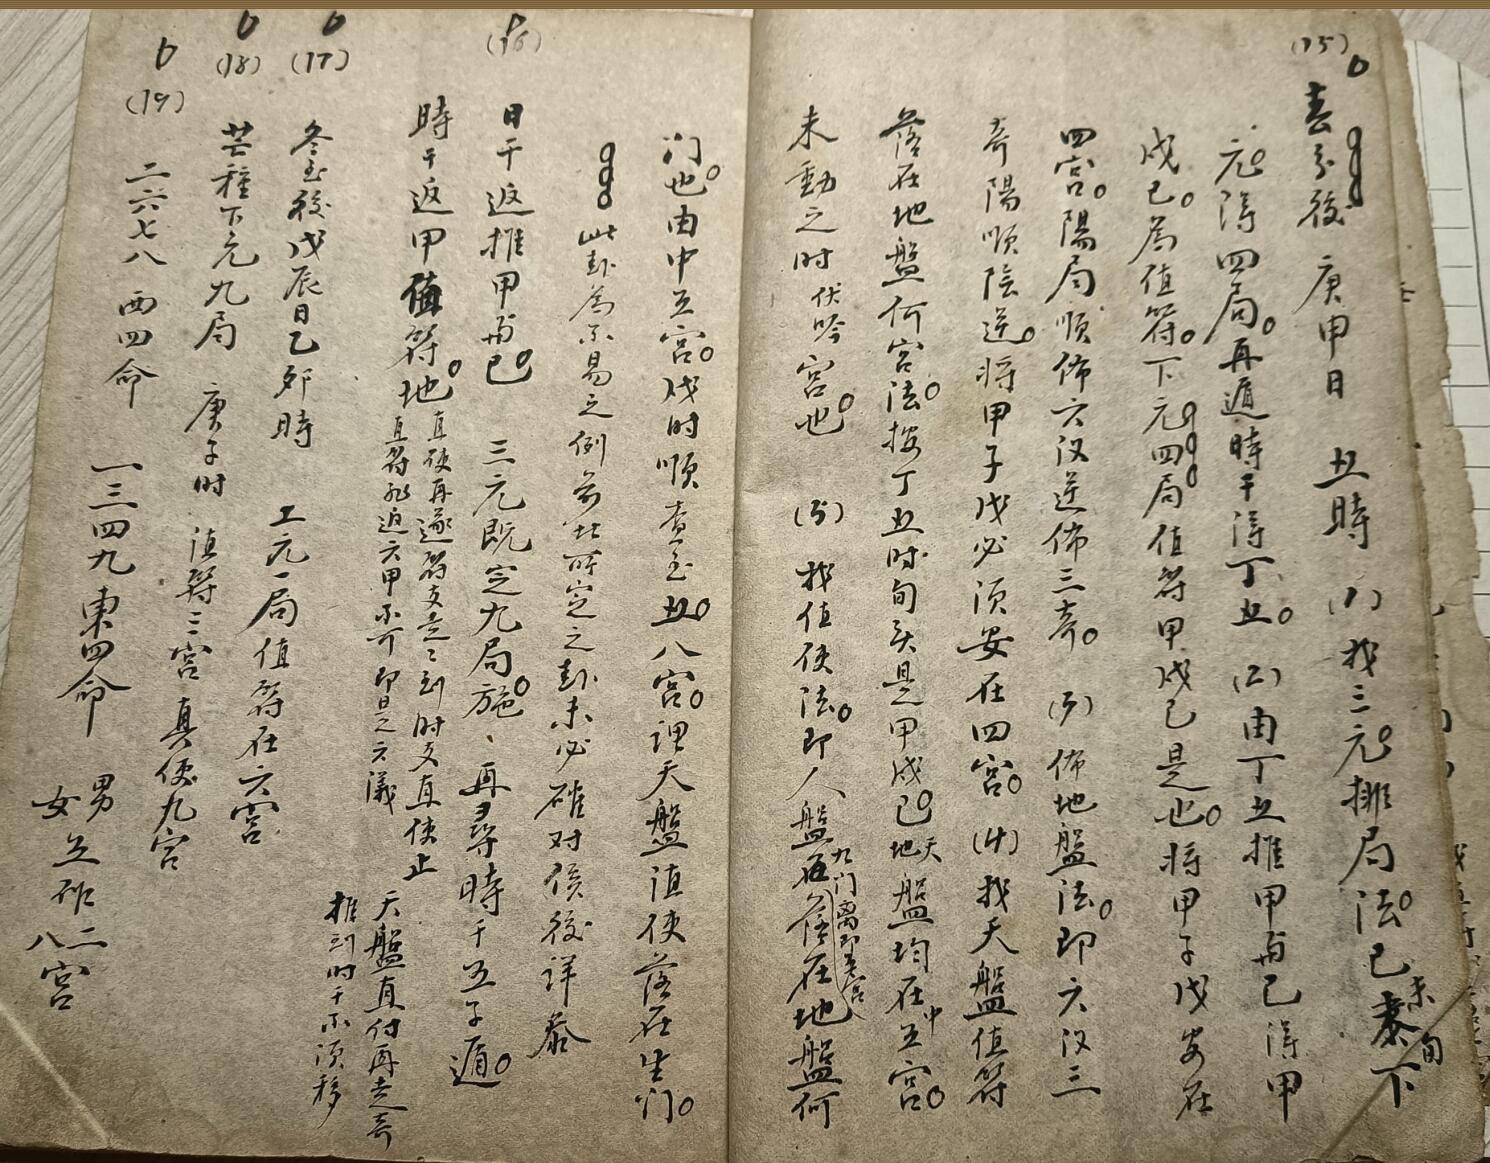 (15)
春分後 庚申日 丑時 (1) 找三元排局法 已未旬下
元 得四局 再遁時干得丁丑 (2) 由丁丑推甲与己 得甲
戊己 為值符 下元四局值符甲戊己是也 将甲子戊安在
四宮 陽局順佈六汉逆佈三奇 (3) 佈地盤法 即六汉三
奇陽順陰逆 将甲子戊必須安在四宮 (4) 找天盤值符
落在地盤何宮法 按丁丑时旬头是甲戍己 天地盤均在中五宮
未動之时伏吟宮也 (5) 找值使法 即人盤 落在地盤何
九门离即
门也 由中五宮 戊时順查至丑 八宮 理天盤值使落在生门
此卦為不易之例 前此所定之卦未必確对 侯後詳泰
(16)
日干返推甲与已 三元既定九局施 再尋時干五子遁
時干返甲值符地 直使再逐符支走 走到时支直使止
直符 六甲不可 即是六儀
天盤直付再走奇
推到时干不須移
(17)
冬至後戊辰日乙卯時 上元一局值符在六宮
(18)
芒種下元九局 庚子时 值符三宮 真使九宮
(19)
二六七八 西四命 一三四九東四命 男女五作二八宮